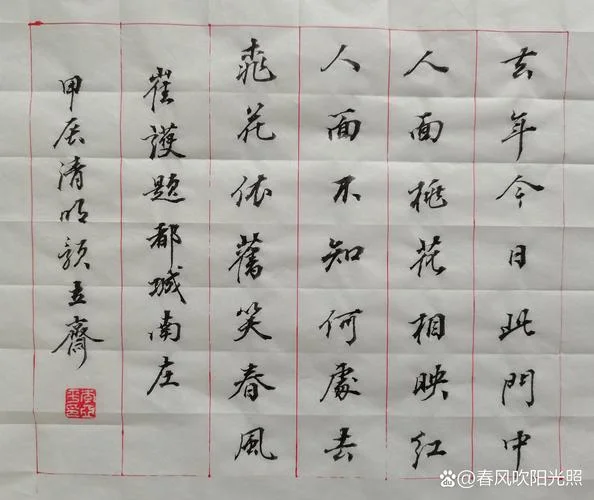 去年今日此門中
人面桃花相映紅
人面不知何處去
桃花依舊笑春風
崔護題都城南庄
甲辰清明 立齋
@春风吹阳光照